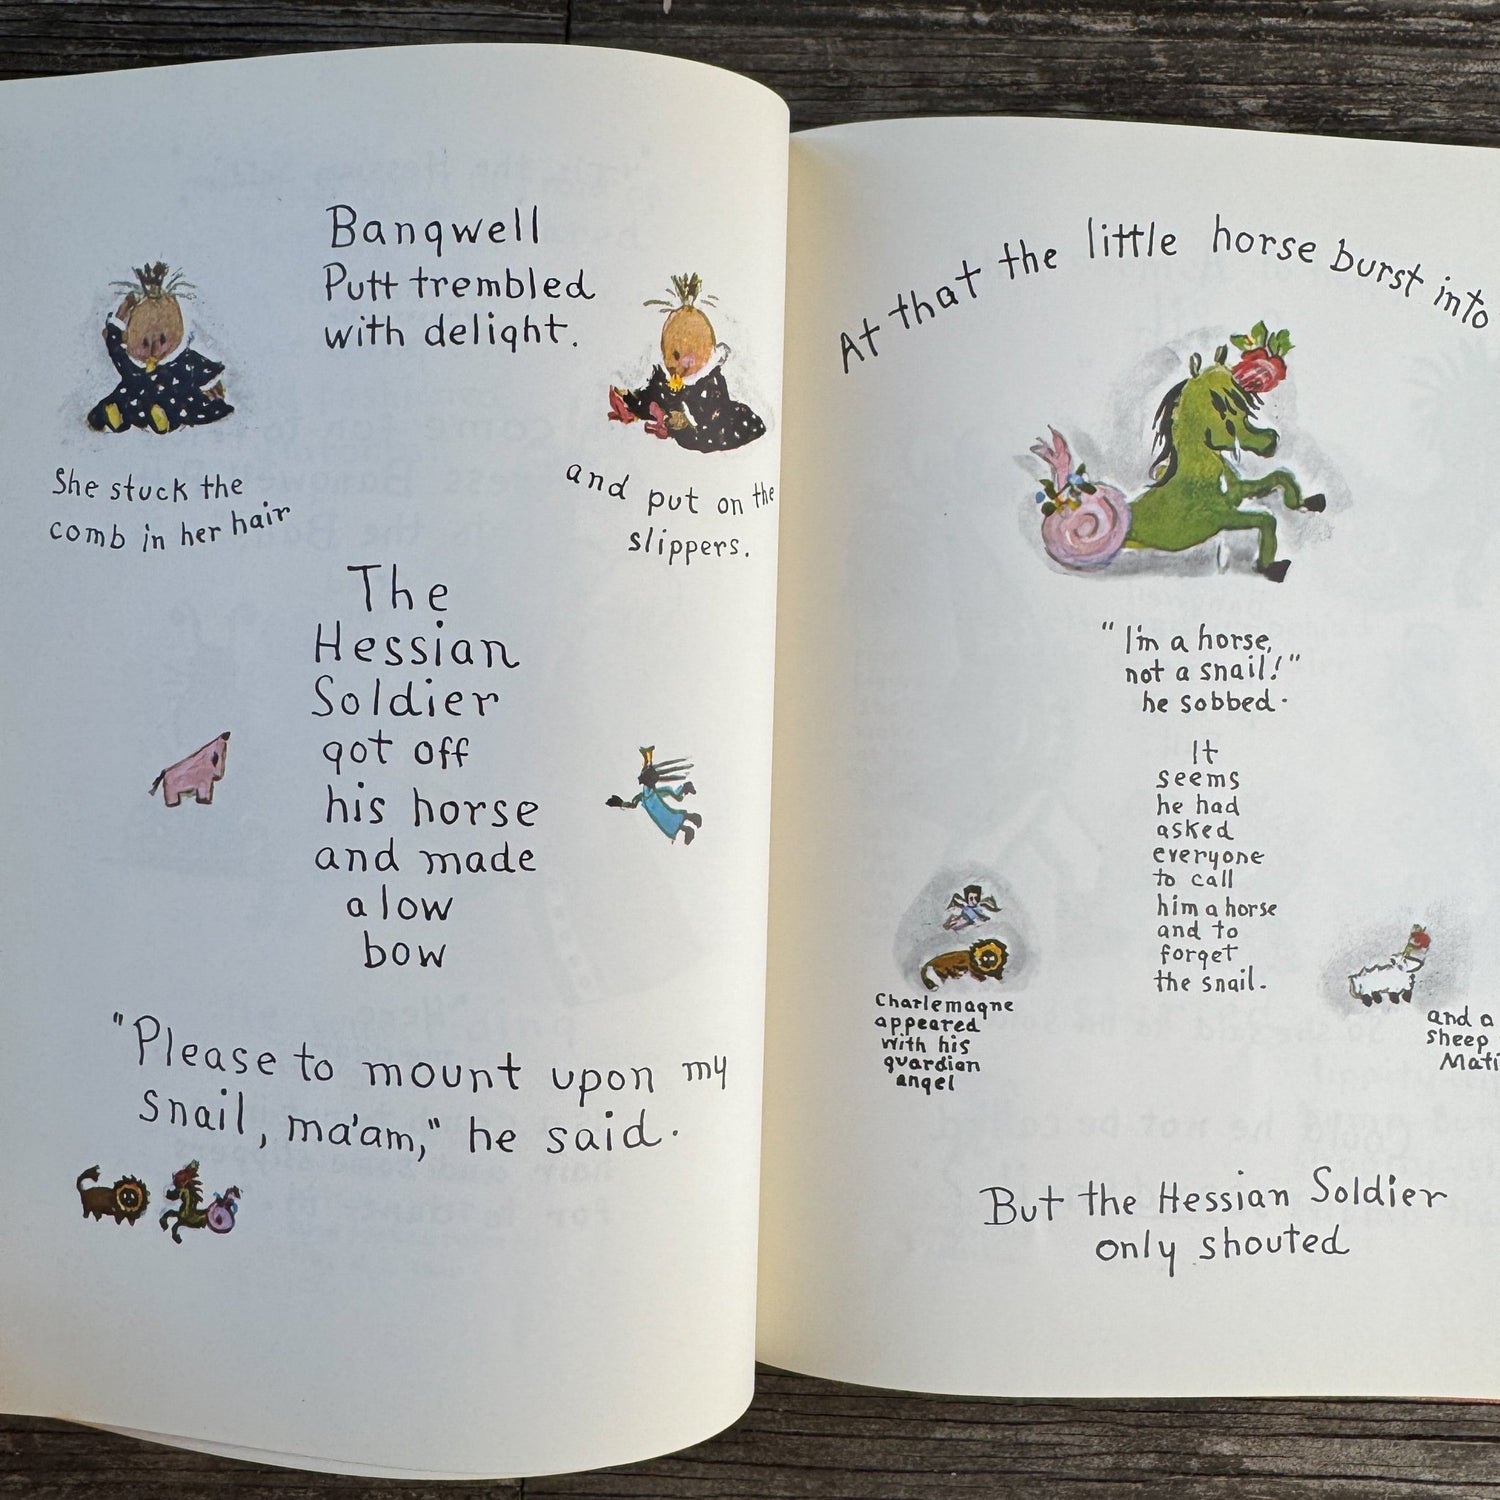 Banqwell
Putt trembled
with delight.
She stuck the
comb in her hair
and put on the
slippers.
The
Hessian
Soldier
got off
his horse
and made
a low
bow
"Please to mount upon my
snail, ma'am," he said.
At that the little horse burst into
"I'm a horse,
not a snail!"
he sobbed.
It
seems
he had
asked
everyone
to call
him a horse
and to
forget
the snail.
Charlemagne
appeared
with his
guardian
angel
and a
sheep
But the Hessian Soldier
only shouted